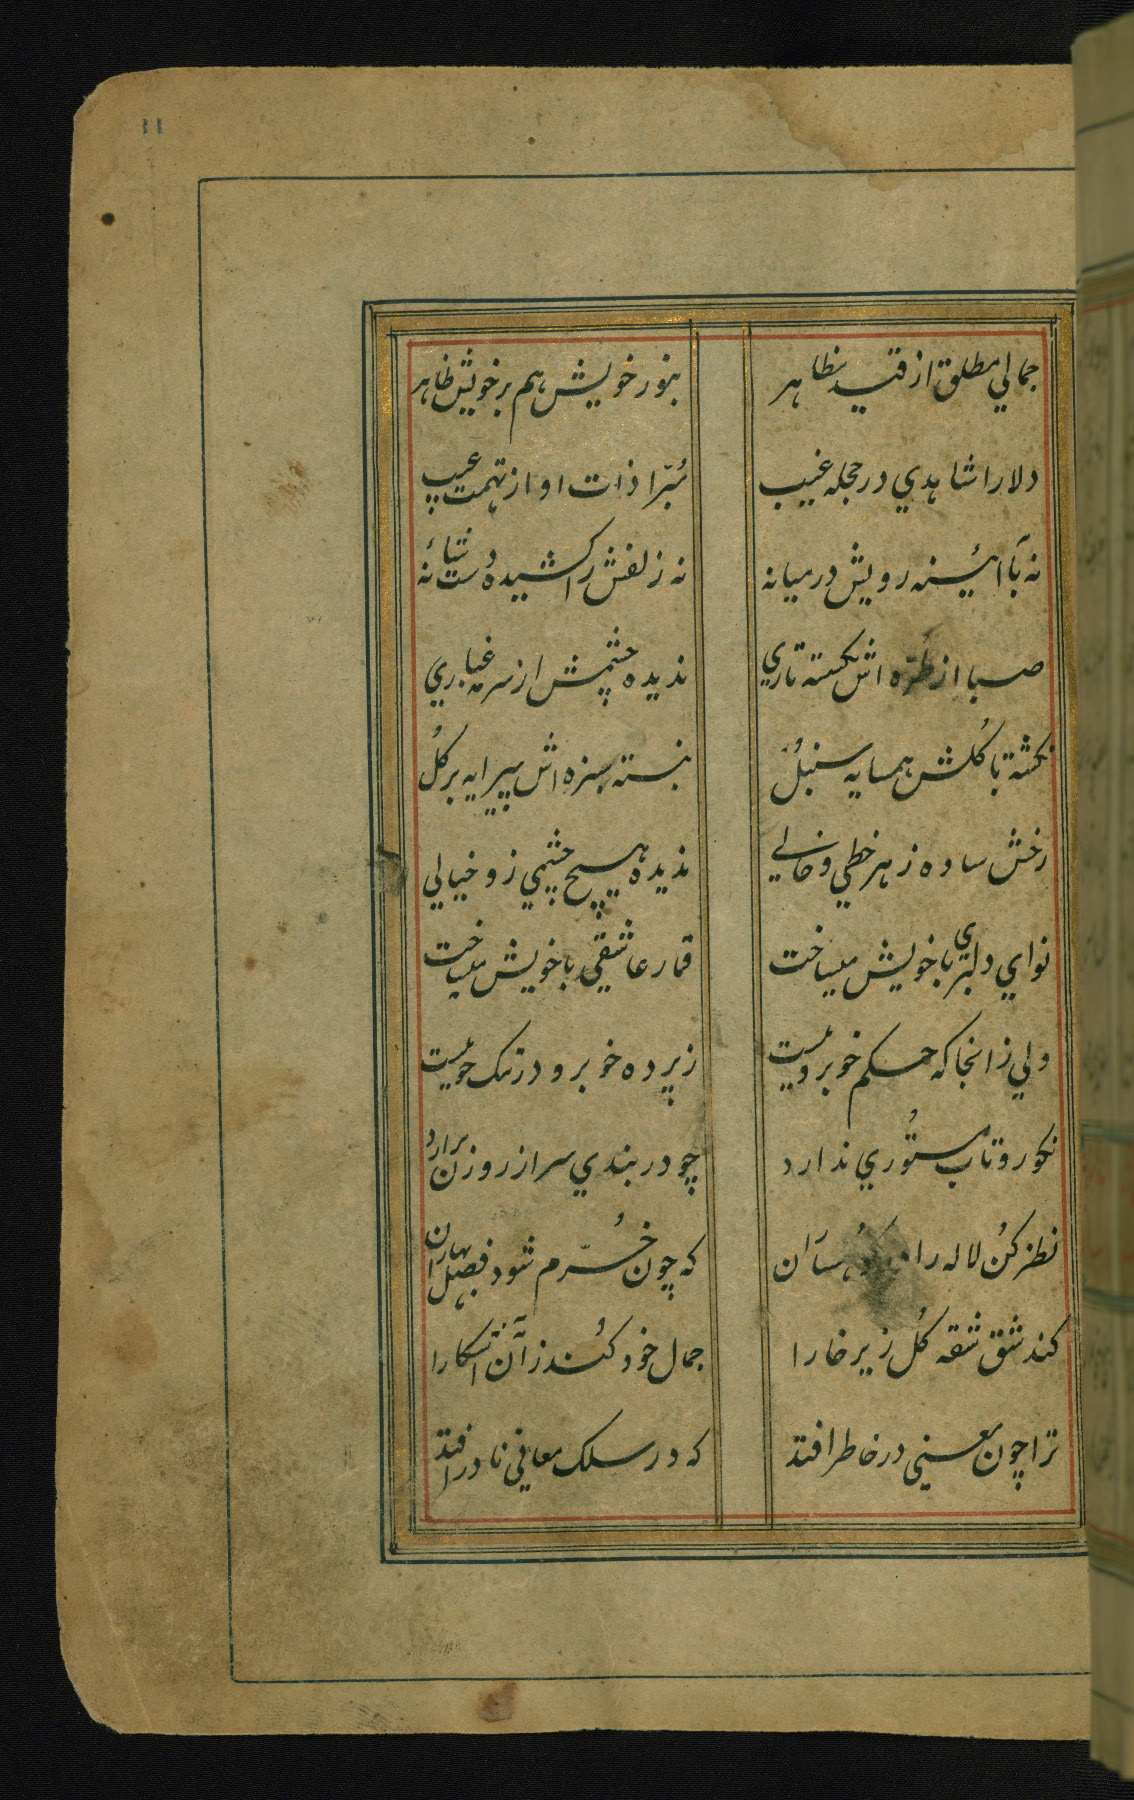 ١١
جمالی مطلق از قید مظاهر
بنور خویش هم بر خویش ظاهر
دلارا شاهدی در حجله غیب
مُبّرا ذات او از تهمت عیب
نه با آئینه رویش در میانه
نه زلفش را کشیده دست شانه
صبا از طُرّه اش نکسسته تاری
ندیده چشمش از سرمه غباری
نکشته با کُلش همسایه سنبلُ
نبسته سبزه اش پیرایه بر کُل
رخش ساده ز هر خطی و خالی
ندیده هیچ چشمی زو خیالی
نوای دلبری با خویش میساخت
قمار عاشقی با خویش میباخت
ولی زانجا که حکم خوبرویست
ز پرده خوبرو در تنک خویست
نکو رو تاب مستُوری ندارد
چو در بندی سر از روزن برارد
نظر کنُ لاله را در کوُهساران
که چون خُرّم شود فصل بهاران
کند شق شقه کُل زیر خارا
جمال خود کُند زآن آشکارا
ترا چون معنیی در خاطر افتد
که در سلک معانی نادر افتد